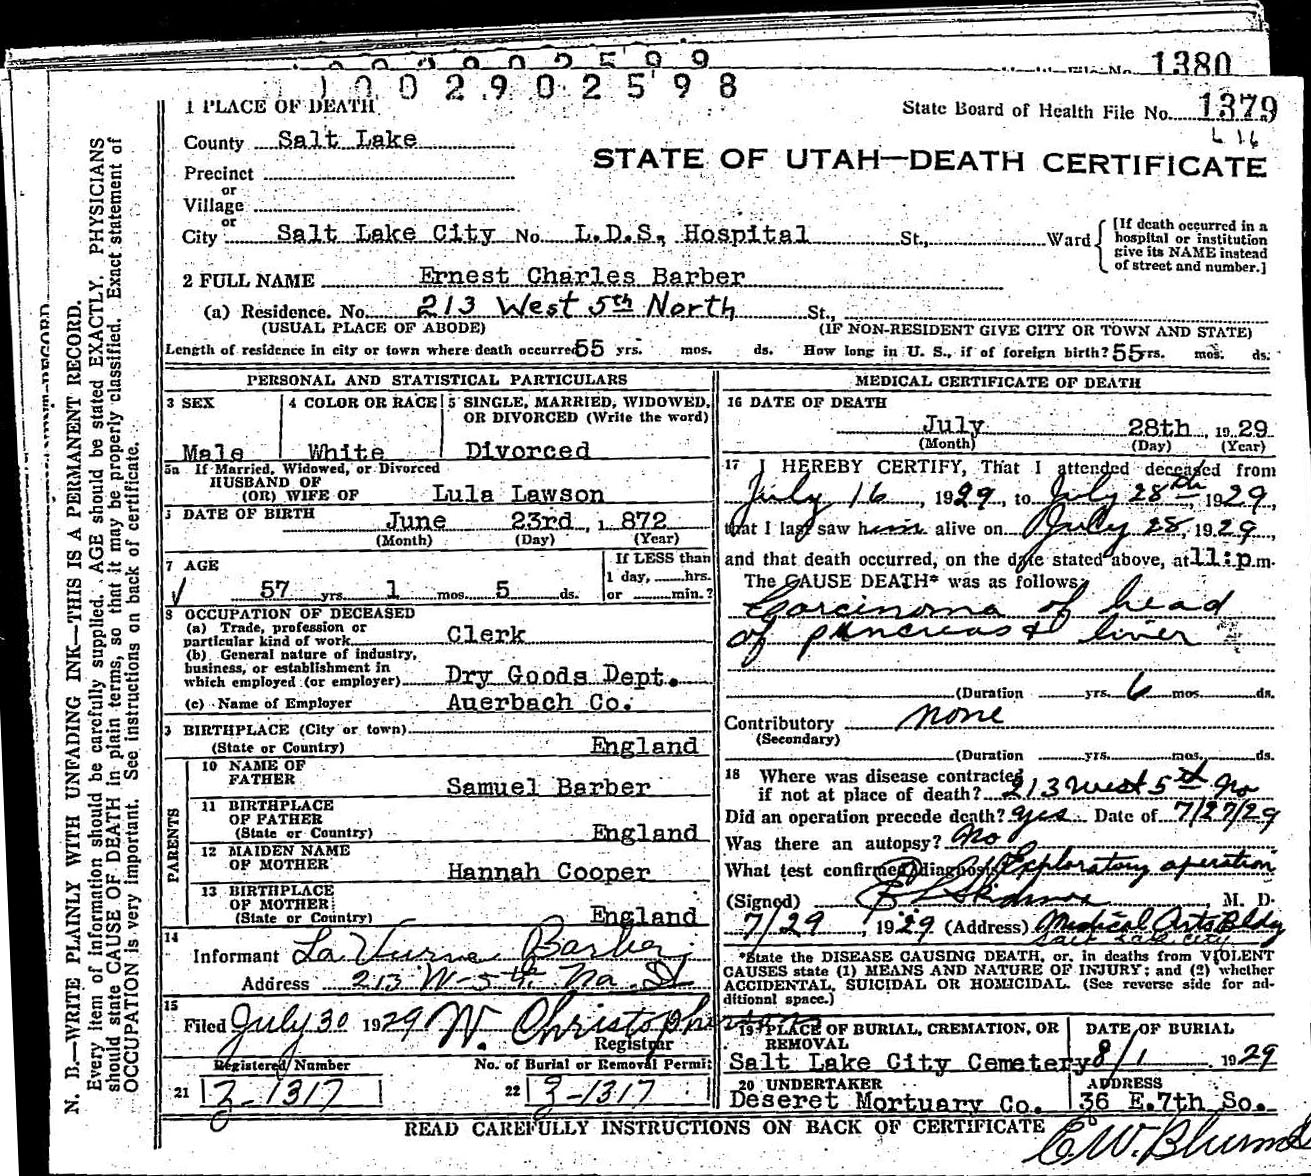 1380
1 0 0 2 9 0 2 5 9 8
1 PLACE OF DEATH
State Board of Health File No. 1379
L 16
County Salt Lake
STATE OF UTAH—DEATH CERTIFICATE
Precinct
or
Village
or
City Salt Lake City No. L.D.S. Hospital St., Ward
[If death occurred in a hospital or institution give its NAME instead of street and number.]
2 FULL NAME Ernest Charles Barber
(a) Residence. No. 213 West 5th North St.,
(USUAL PLACE OF ABODE) (IF NON-RESIDENT GIVE CITY OR TOWN AND STATE)
Length of residence in city or town where death occurred 55 yrs. mos. ds. How long in U. S., if of foreign birth? 55 yrs. mos. ds.
PERSONAL AND STATISTICAL PARTICULARS
3 SEX
Male
4 COLOR OR RACE
White
5 SINGLE, MARRIED, WIDOWED, OR DIVORCED (Write the word)
Divorced
5a If Married, Widowed, or Divorced
HUSBAND OF
(OR) WIFE OF Lula Lawson
DATE OF BIRTH June 23rd, 1872
(Month) (Day) (Year)
7 AGE
57 yrs. 1 mos. 5 ds.
If LESS than
1 day, hrs.
or min.?
8 OCCUPATION OF DECEASED
(a) Trade, profession or
particular kind of work Clerk
(b) General nature of industry,
business, or establishment in
which employed (or employer) Dry Goods Dept.
(c) Name of Employer Auerbach Co.
9 BIRTHPLACE (City or town)
(State or Country) England
PARENTS
10 NAME OF
FATHER Samuel Barber
11 BIRTHPLACE
OF FATHER
(State or Country) England
12 MAIDEN NAME
OF MOTHER Hannah Cooper
13 BIRTHPLACE
OF MOTHER
(State or Country) England
14
Informant La Verne Barber
Address 213 W-5th No. St
15
Filed July 30 1929 W. Christopherson
Registrar
Registered Number
21 Z-1317
No. of Burial or Removal Permit
22 Z-1317
MEDICAL CERTIFICATE OF DEATH
16 DATE OF DEATH
July 28th, 1929
(Month) (Day) (Year)
17 I HEREBY CERTIFY, That I attended deceased from
July 16, 1929, to July 28th, 1929,
that I last saw him alive on July 28, 1929,
and that death occurred, on the date stated above, at 11:p.m.
The CAUSE DEATH* was as follows:
Carcinoma of head
of pancreas & liver
(Duration yrs. 6 mos. ds.
Contributory none
(Secondary)
(Duration yrs. mos. ds.
18 Where was disease contracted
if not at place of death? 213 West 5th No
Did an operation precede death? yes Date of 7/27/29
Was there an autopsy? No
What test confirmed diagnosis Exploratory operation
(Signed) M. D.
7/29, 1929 (Address) Medical Arts Bldg
Salt Lake City
*State the DISEASE CAUSING DEATH, or, in deaths from VIOLENT
CAUSES state (1) MEANS AND NATURE OF INJURY; and (2) whether
ACCIDENTAL, SUICIDAL OR HOMICIDAL. (See reverse side for ad-
ditional space.)
19 PLACE OF BURIAL, CREMATION, OR
REMOVAL
Salt Lake City Cemetery
DATE OF BURIAL
8/1 1929
20 UNDERTAKER
Deseret Mortuary Co.
ADDRESS
36 E. 7th So.
READ CAREFULLY INSTRUCTIONS ON BACK OF CERTIFICATE
N. B.—WRITE PLAINLY WITH UNFADING INK—THIS IS A PERMANENT RECORD.
Every item of information should be carefully supplied. AGE should be stated EXACTLY. PHYSICIANS
should state CAUSE OF DEATH in plain terms, so that it may be properly classified. Exact statement of
OCCUPATION is very important. See instructions on back of certificate.